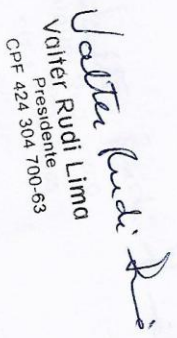 Valter Rudi
Valter Rudi Lima
Presidente
CPF 424 304 700-63